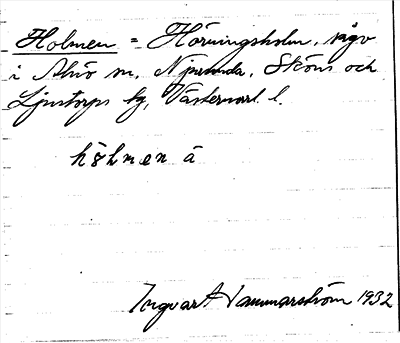 Holmen = Hörningsholm, sågv
i Alnö sn, Njurunda, Sköns och
Ljustorps tg, Västernorrl. l.
hölmen ä
Ingvar Hammarström 1932